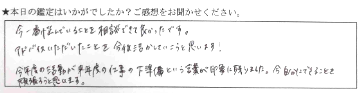 ★本日の鑑定はいかがでしたか？ご感想をお聞かせください。
今一番悩んでいることを相談できて良かったです。
アドバイスいただいたことを今後に活かしていこうと思います！
今年度の活動が来年度の仕事の下準備という言葉が印象に残りました。今自分にできることを
頑張ろうと思います。